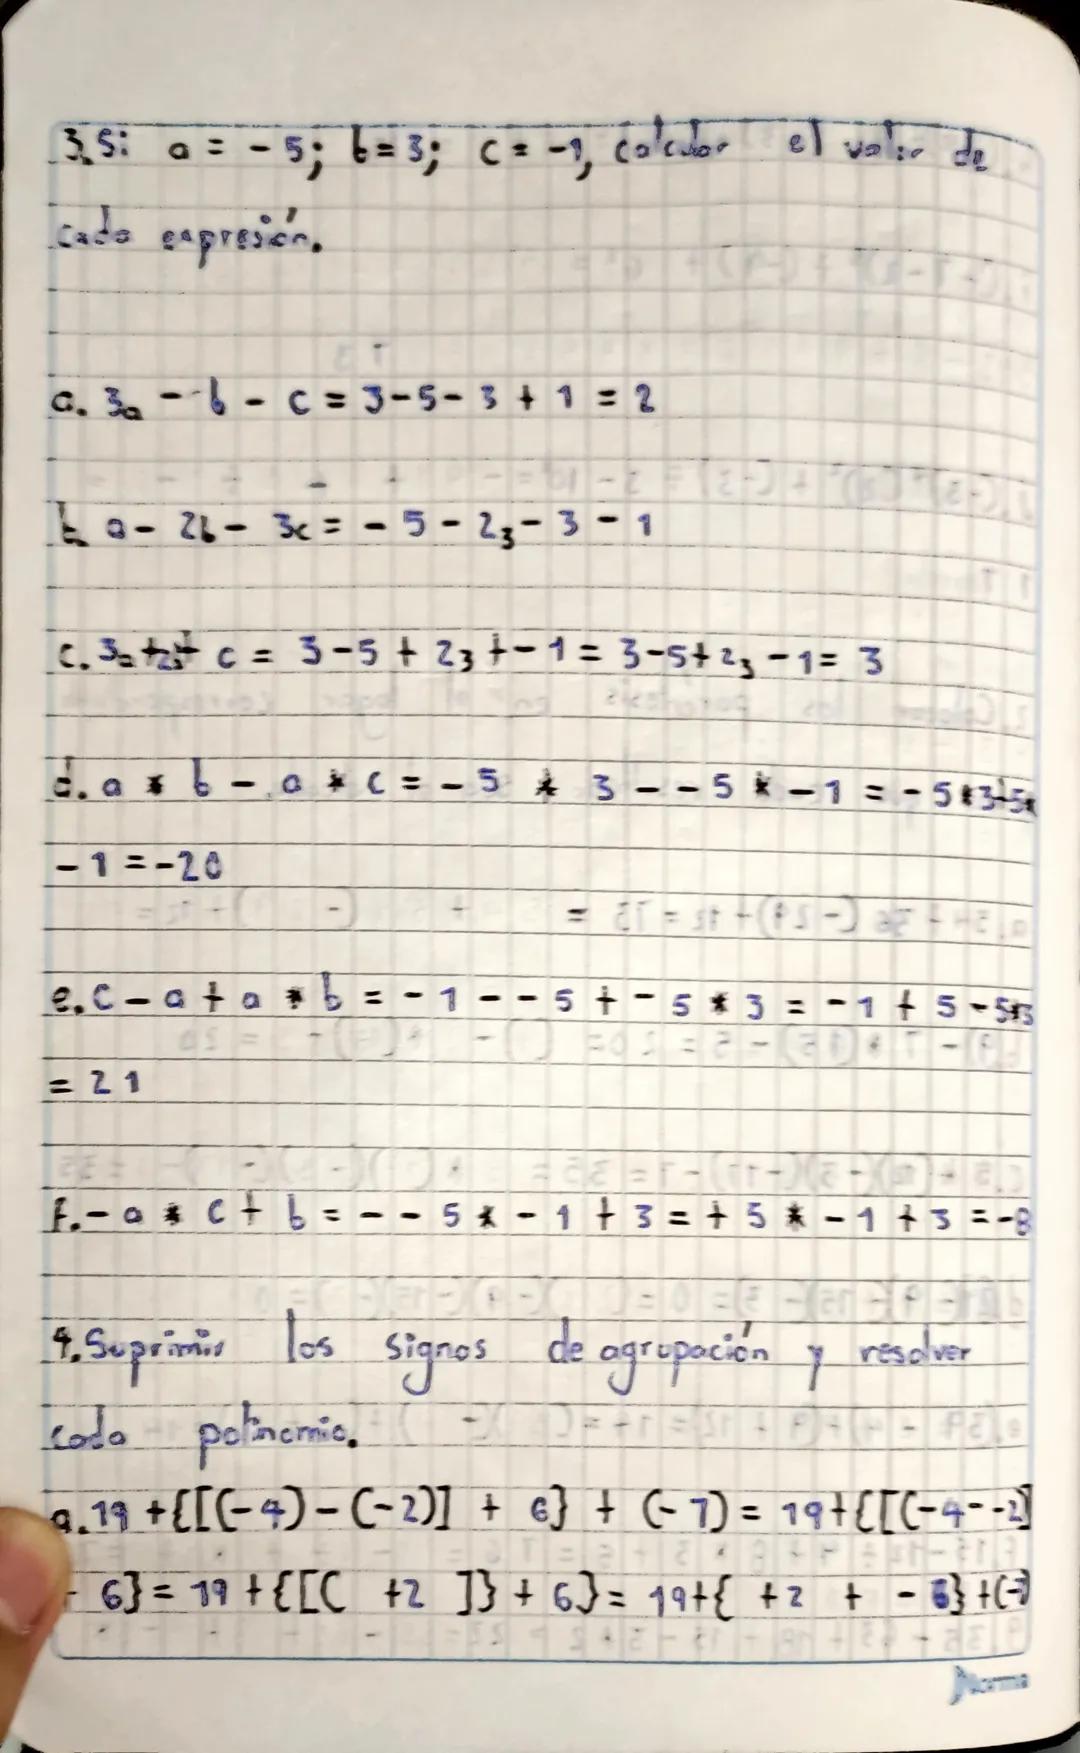 3. Si: a = - 5; b = 3; c = -1, calcular el valor de
cada expresión.
a. 3a - b - c = 3-5-3+1 = 2
b. a - 2b - 3c = - 5 - 23 - 3 - 1
c. 3a + 2b + c = 3-5 + 23 + - 1 = 3-5+23 -1= 3
d. a * b - a * c = - 5 * 3 - - 5 * - 1 = - 5*3+5*
- 1 = -20
e. c - a + a * b = - 1 - - 5 + - 5 * 3 = - 1 + 5 - 5*3
= 21
f. - a * c + b = - - 5 * - 1 + 3 = + 5 * - 1 + 3 = -8
4. Suprimir los signos de agrupación y resolver
cada polinomio.
a. 19 +{[(-4)-(-2)] + 6} + (-7) = 19+{[(-4--2]
+ 6} = 19 +{[( +2 ]} + 6}= 19+{ +2 + - 6} +(-7
Norma